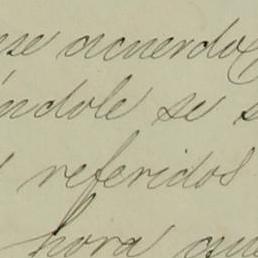 ese acuerdo
éndole se s
referidos
hora que